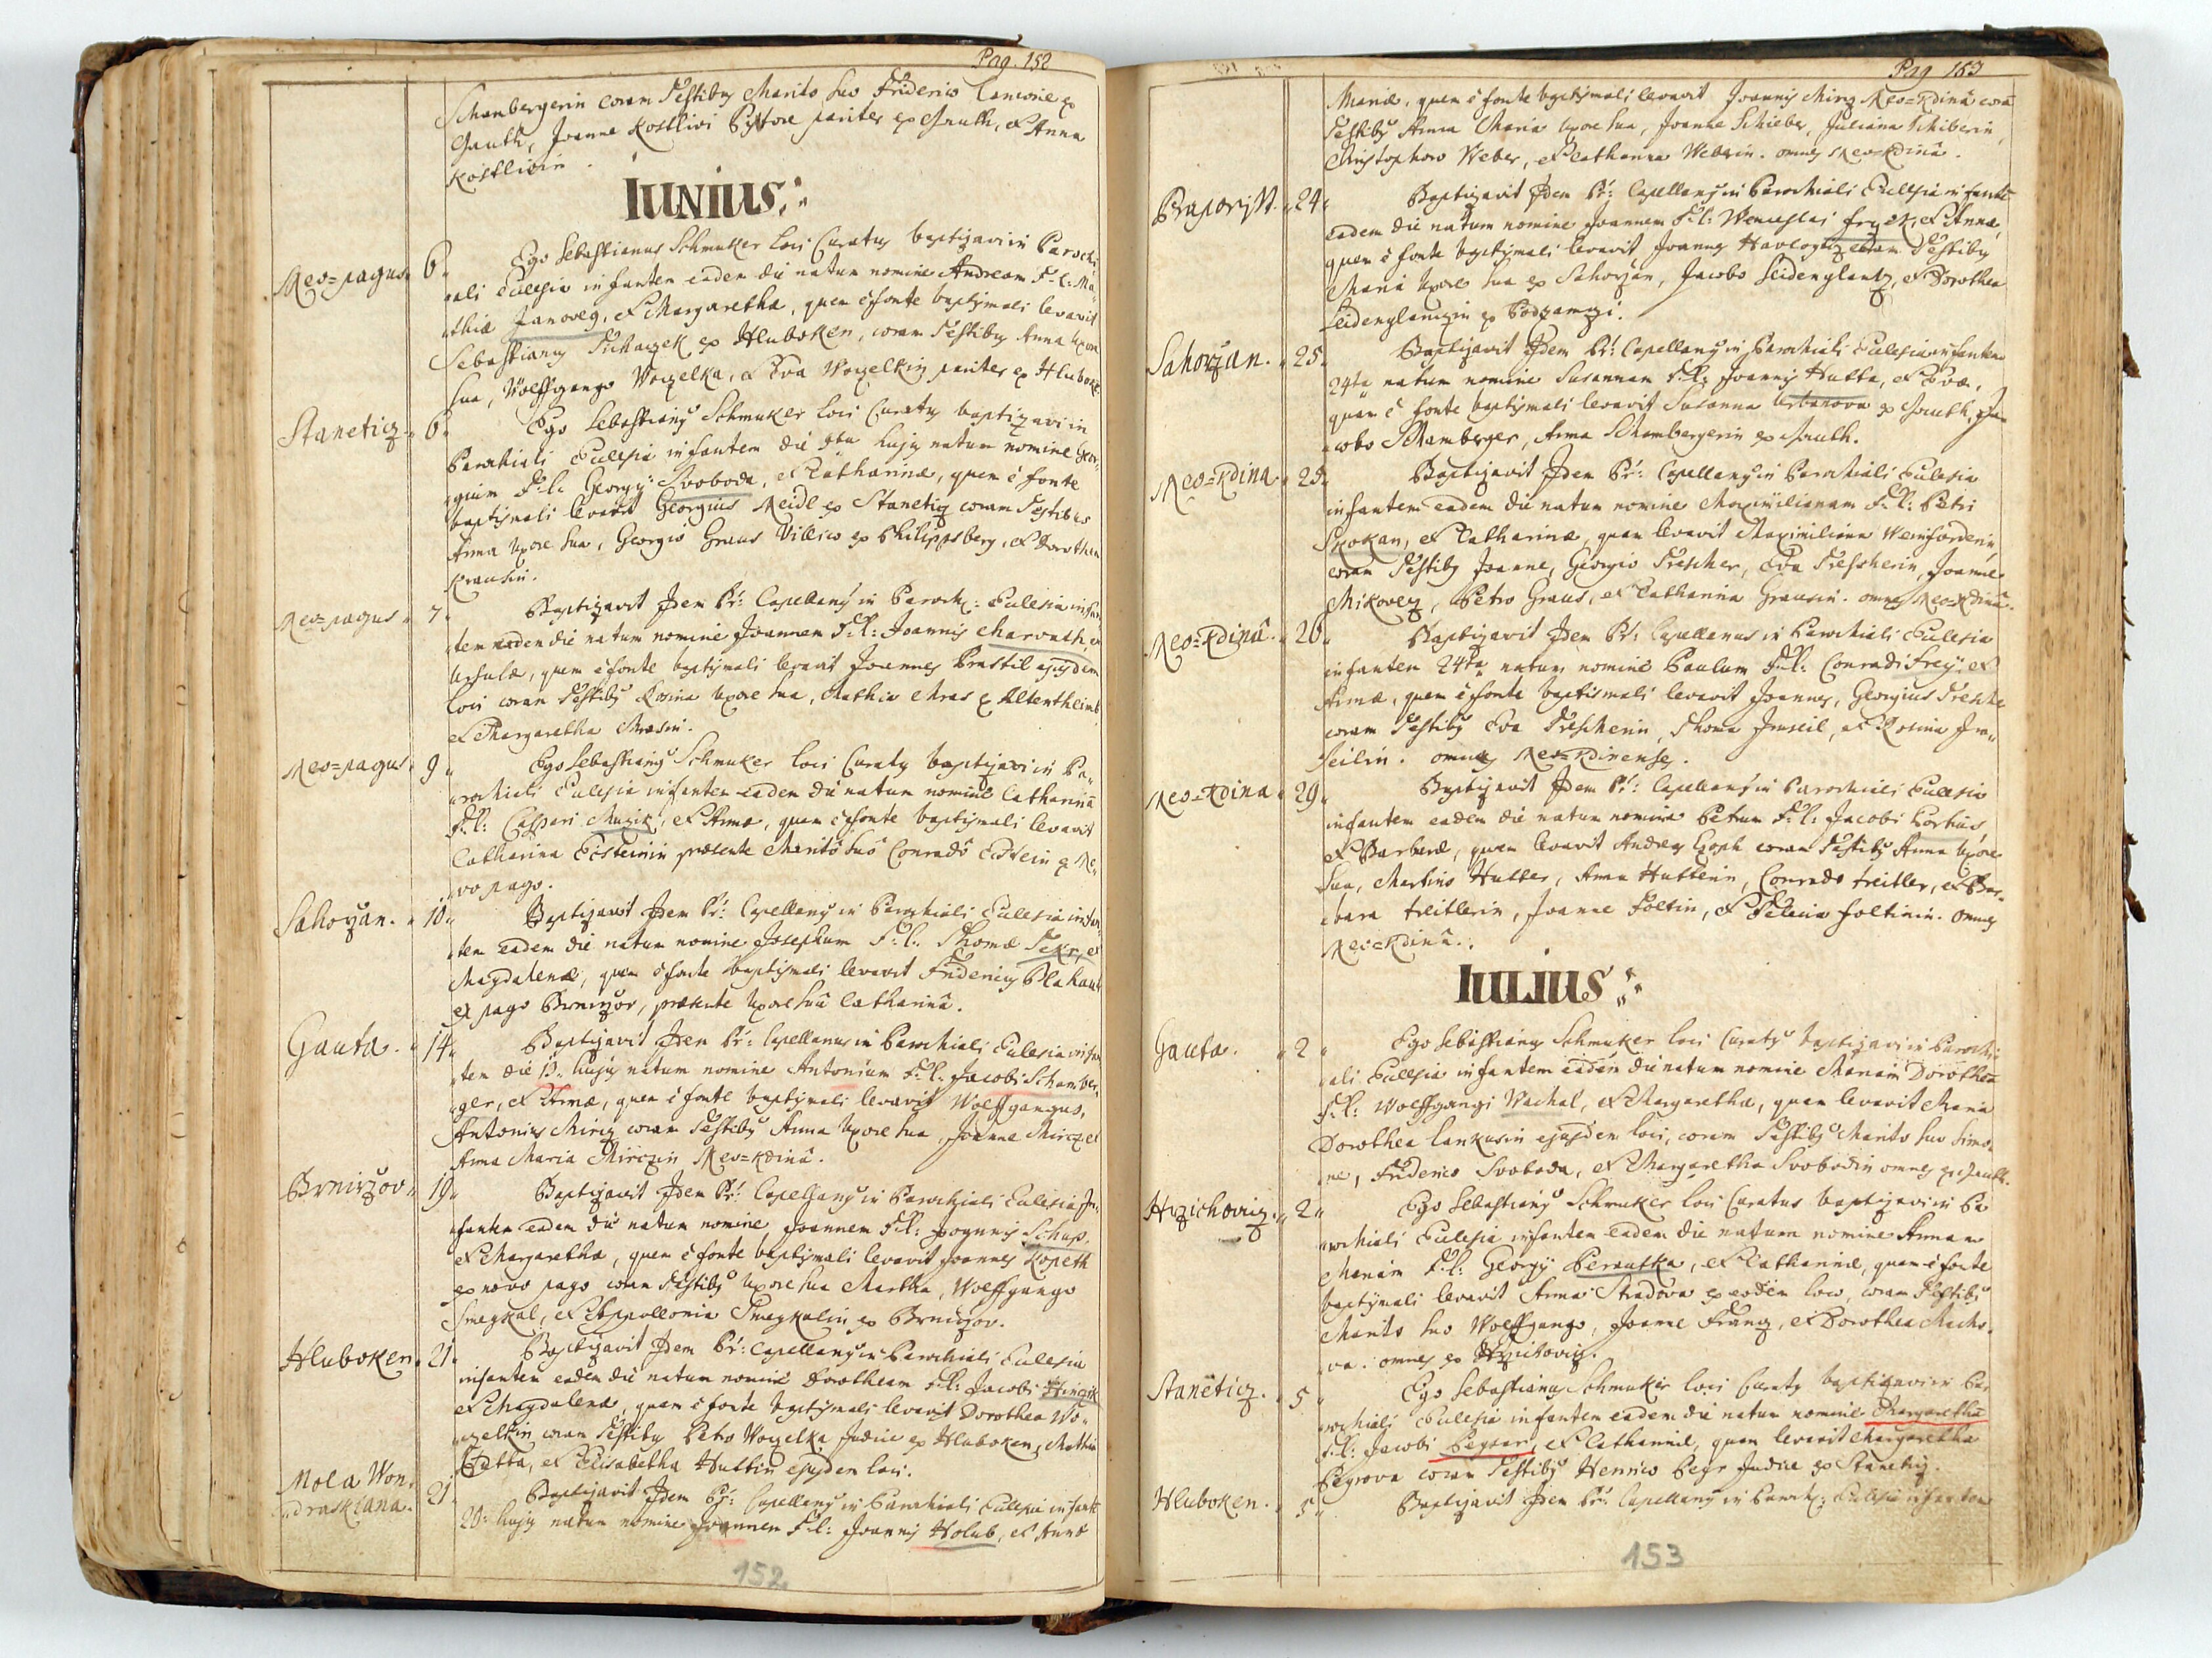 Pag. 152
Schambergerin coram Testibus Marito suo Friderico
Gauth, Joanne Kostlivi pariter ex Gauth, et Anna
Kostlivin.
IUNIUS:
Neo=pagus 6 Ego Sebastianus Schmuker loci Curatus baptizavi in Parochi
ali Ecclesia infantem eadem die natum nomine Andream F. l: Ma
thiæ Janoveg, et Margaretha, quem è fonte baptismali levavit
Sebastianus ex Hluboken, coram Testibus Anna Uxore
sua, Wolffgango Woczelka, et Eva Woczelkin pariter ex Hluboke
Staneticz 6 Ego Sebastianus Schmuker loci Curatus baptizavi in
Parochiali Ecclesia infantem die hujus natum nomine Geor
gium F. l. Georgÿ Svoboda, et Catharinæ, quem è fonte
baptismali levavit Georgius Meidl ex Stanetiz coram Testibus
Anna Uxore sua, Georgio Graus Villico ex Philippsberg, et Dorothea
Krausin.
Neo=pagus 7 Baptizavit Idem Pr: Capellanus in Paroch: Ecclesia infan
tem eadem die natum nomine Joannem F. l: Joannis Charvath, et
Ursulæ, quem è fonte baptismali levavit Joannes Prastil ejusdem
loci coram Testibus Rosina Uxore sua, Mathia Mras ex
et Margaretha Mrasin.
Neo=pagus 9 Ego Sebastianus Schmuker loci Curatus baptizavi in Pa
rochiali Ecclesia infantem eadem die natum nomine Catharinã
F. l: Caspari Muzik, et Annæ, quem è fonte baptismali levavit
Catharina Ecsteinin præsente Maritô suô Conradô Ecstein ex No
vo pago.
Sahorzan. 10 Baptizavit Idem Pr: Capellanus in Parochiali Ecclesia infan
tem eadem die natum nomine Josephum F. l. Thomæ Tekr, et
Magdalenæ, quem è fonte baptismali levavit Fridericus Blahaut
ex pago Brnirzov, præsente Uxore suâ Catharinâ.
Gauta. 14 Baptizavit Idem Pr: Capellanus in Parochiali Ecclesia infan
tem die 13. hujus natum nomine Antonium F. l. Jacobi Schamber
ger, et Annæ, quem è fonte baptismali levavit Wolffgangus,
Antonius Mircz coram Testibus Anna Uxore sua, Joanne Mircz et
Anna Maria Mirczin Neo=Kdinâ.
Brnirzov 19 Baptizavit Idem Pr: Capellanus in Parochiali Ecclesia In
fantem eadem die natum nomine Joannem F. l: Joannis Schup.
et Margarethæ, quem è fonte baptismali levavit Joannes Kopeth
ex novo pago coram Testibus Uxore sua Martha, Wolffgango
Smeykal, et Appollonia Smeykalin ex Brnirzov.
Hluboken 21 Baptizavit Idem Pr: Capellanus in Parochiali Ecclesia
infantem eadem die natum nomine Dorotheam F. l: Jacobi
et Magdalenæ, quam è fonte baptismali levavit Dorothea Wo
czelkin coram Testibus Petro Woczelka Judice ex Hluboken, Mathia
Hutta, et Elisabetha Huttin ejusdem loci.
Mola Won
draskiana. 21 Baptizavit Idem Pr: Capellanus in Parochiali Ecclesia infantẽ
20. hujus natum nomine Joannem F. l: Joannis Holub, et Annæ
152
Pag 153
Mariæ, quem è fonte baptismali levavit Joannes Mircz Neo=Kdinâ corã
Testibus Anna Maria Uxore sua, Joanne Schieber, Juliana Schiberin,
Christophoro Weber, et Catharina Weberin. omnes Neo=Kdinâ.
24 Baptizavit Idem Pr: Capellanus in Parochiali Ecclesia infantẽ
eadem die natum nomine Joannem F. l: Wenceslai et Annæ,
quem è fonte baptismali levavit Joannes coram Testibus
Maria Uxore sua ex Sahorzan, Jacobo Seidenglantz, et Dorothea
Seidenglanzin ex Podzamczi.
Sahorzan. 25 Baptizavit Idem Pr: Capellanus in Parochiali Ecclesia infantem
24ta natum nomine Susannam F. l: Joannis Hutta, et Evæ,
quam è fonte baptismali levavit Susanna Urbanova ex Gauth, Ja
cobo Schamberger, Anna Schambergerin ex Gauth.
Neo=Kdina 25 Baptizavit Idem Pr: Capellanus in Parochiali Ecclesia
infantem eadem die natum nomine Maximilianam F. l: Petri
Skokan, et Catharinæ, quam levavit Maximiliana
coram Testibus Joanne, Georgio Trescher, Eva Trescherin, Joanne
Mikovez, Petro Graus, et Catharina Grausin. omnes Neo=Kdinâ.
Neo=Kdinâ. 26 Baptizavit Idem Pr: Capellanus in Parochiali Ecclesia
infantem 24ta natum nomine Paulum F. l: Conradi Freÿ et
Annæ, quem è fonte baptismali levavit Joannes, Georgius Tresche
coram Testibus Eva Trescherin, Thoma Imseil, et Rosina Im
seilin. omnes Neo=Kdinenses.
Neo=Kdina 29 Baptizavit Idem Pr: Capellanus in Parochiali Ecclesia
infantem eadem die natum nomine Petrum F. l: Jacobi
et Barbaræ, quem levavit Andreas coram Testibus Anna Uxore
sua, Martino Hutter, Anna Hutterin, Conrado Treitler, et Bar
bara Treitlerin, Joanne Foltin, et Foltinin. omnes
Neo=Kdinâ.
IULIUS:
Gauta. 2 Ego Sebastianus Schmuker loci Curatus baptizavi in Parochi
ali Ecclesia infantem eadem die natum nomine Mariam Dorotheã
F. l: Wolffgangi Wachal, et Margarethæ, quam levavit Maria
Dorothea Lankusin ejusdem loci, coram Testibus Marito suo Simo
ne, Friderico Svoboda, et Margaretha Svobodin omnes ex Gauth.
Hrzichoviz. 2 Ego Sebastianus Schmuker loci Curatus baptizavi in Pa
rochiali Ecclesia infantem eadem die natum nomine Annam
Mariam F. l: Georgÿ Berautka, et Catharinæ, quam è fonte
baptismali levavit Anna Stradova ex eodem loco, coram Testibus
Marito suo Wolffgango, Joanne Franz, et Dorothea Macho
va. omnes ex
Staneticz. 5 Ego Sebastianus Schmuker loci Curatus baptizavi in Pa
rochiali Ecclesia infantem eadem die natum nomine Margaretha
F. l: Jacobi et Catharinæ, quam levavit Margaretha
Pegrova coram Testibus Henrico Pegr Judice ex Stanetiz.
Hluboken. 5 Baptizavit Idem Pr: Capellanus in Paroch: Ecclesia infantem
153